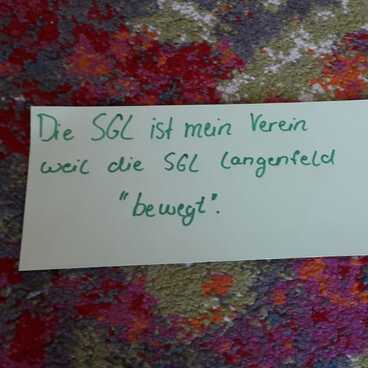 Die SGL ist mein Verein
weil die SGL Langenfeld
"bewegt".